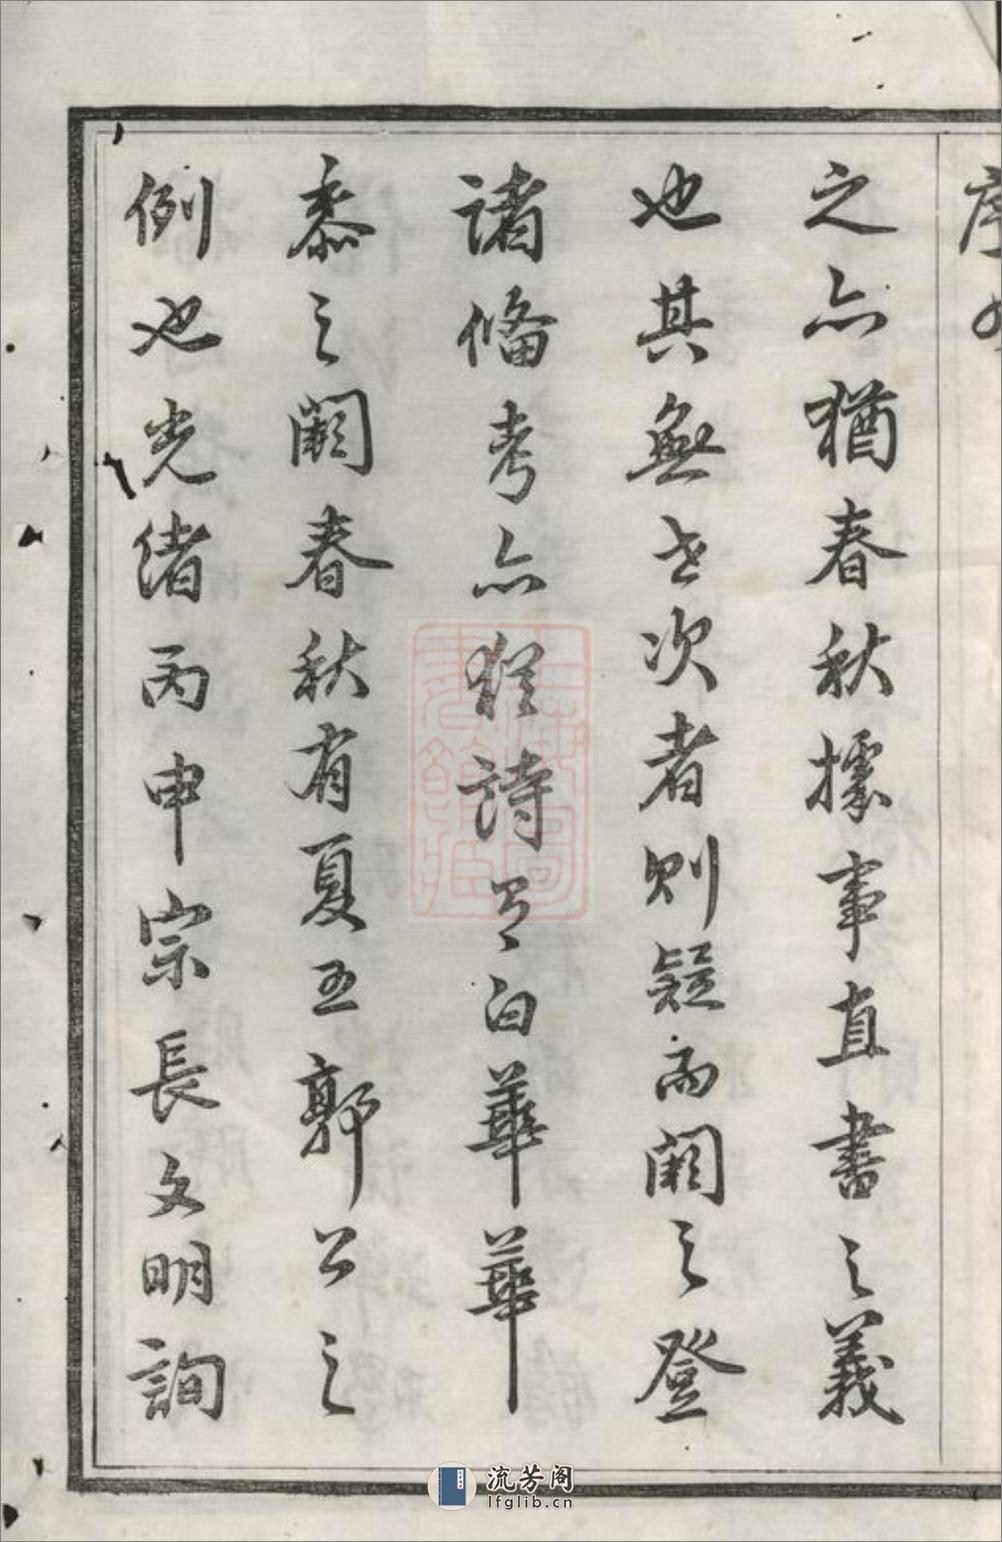 之亦猶春秋據事直書之義
也其無世次者則疑而闕之登
諸備考亦猶詩有白華華
黍之闕春秋有夏五郭公之
例也光緒丙申宗長文明詢
上海圖書館藏
流芳阁
lfglib.cn